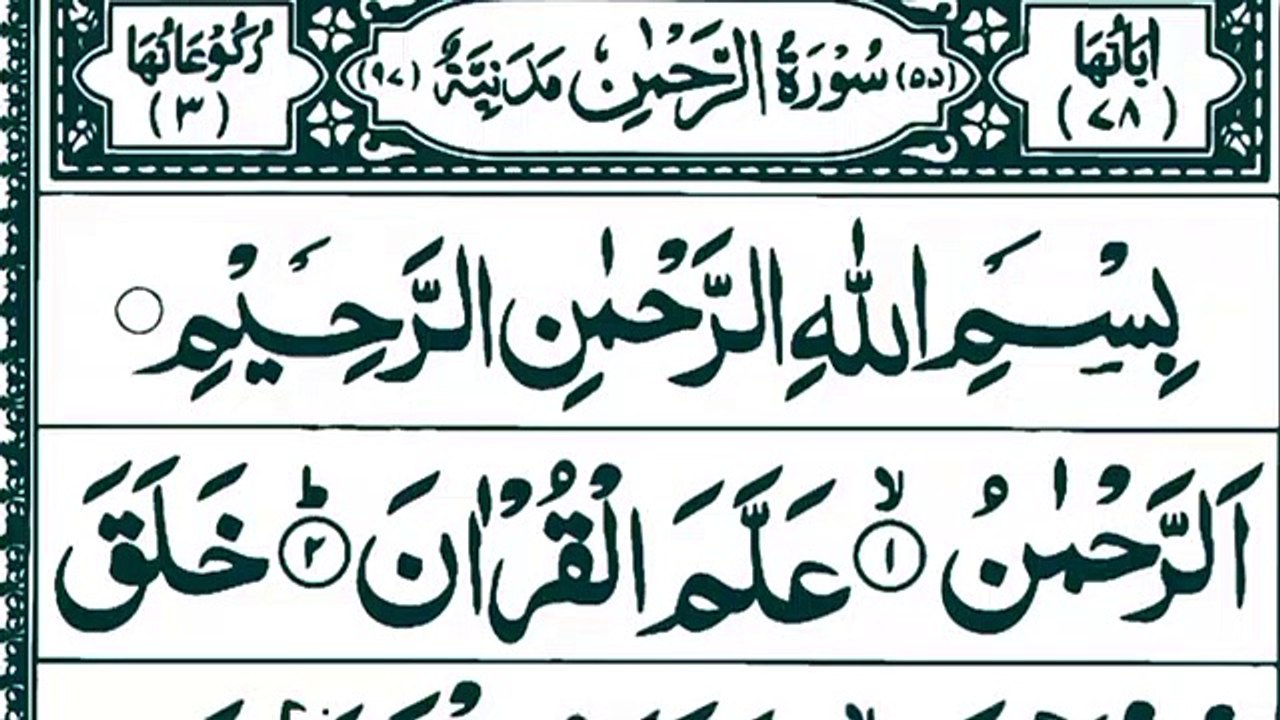 اٰيَاتُهَا (٧٨)
(٥٥) سُوْرَةُ الرَّحْمٰنِ مَدَنِيَّةٌ (٩٧)
رُكُوْعَاتُهَا (٣)
بِسْمِ اللّٰهِ الرَّحْمٰنِ الرَّحِيْمِ
اَلرَّحْمٰنُ ۙ﴿۱﴾ عَلَّمَ الْقُرْاٰنَ ؕ﴿۲﴾ خَلَقَ